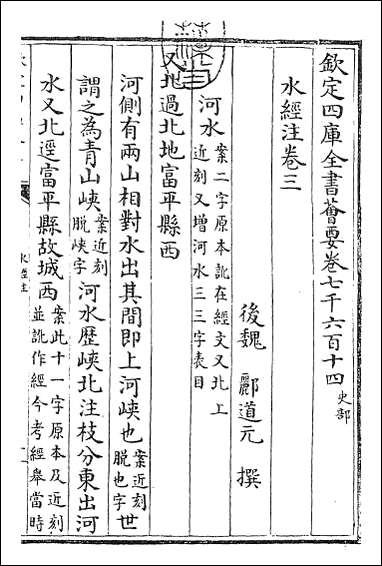 欽定四庫全書薈要卷七千六百十四 史部
水經注卷三
後魏 酈道元 撰
河水 案二字原本訛在經文又北上
近刻又增河水三三字表目
又北過北地富平縣西
河側有兩山相對水出其間即上河峽也 案近刻
脫也字 世
謂之為青山峽 案近刻
脫峽字 河水歷峽北注枝分東出河
水又北逕富平縣故城西 案此十一字原本及近刻
並訛作經今考經舉當時
水經注